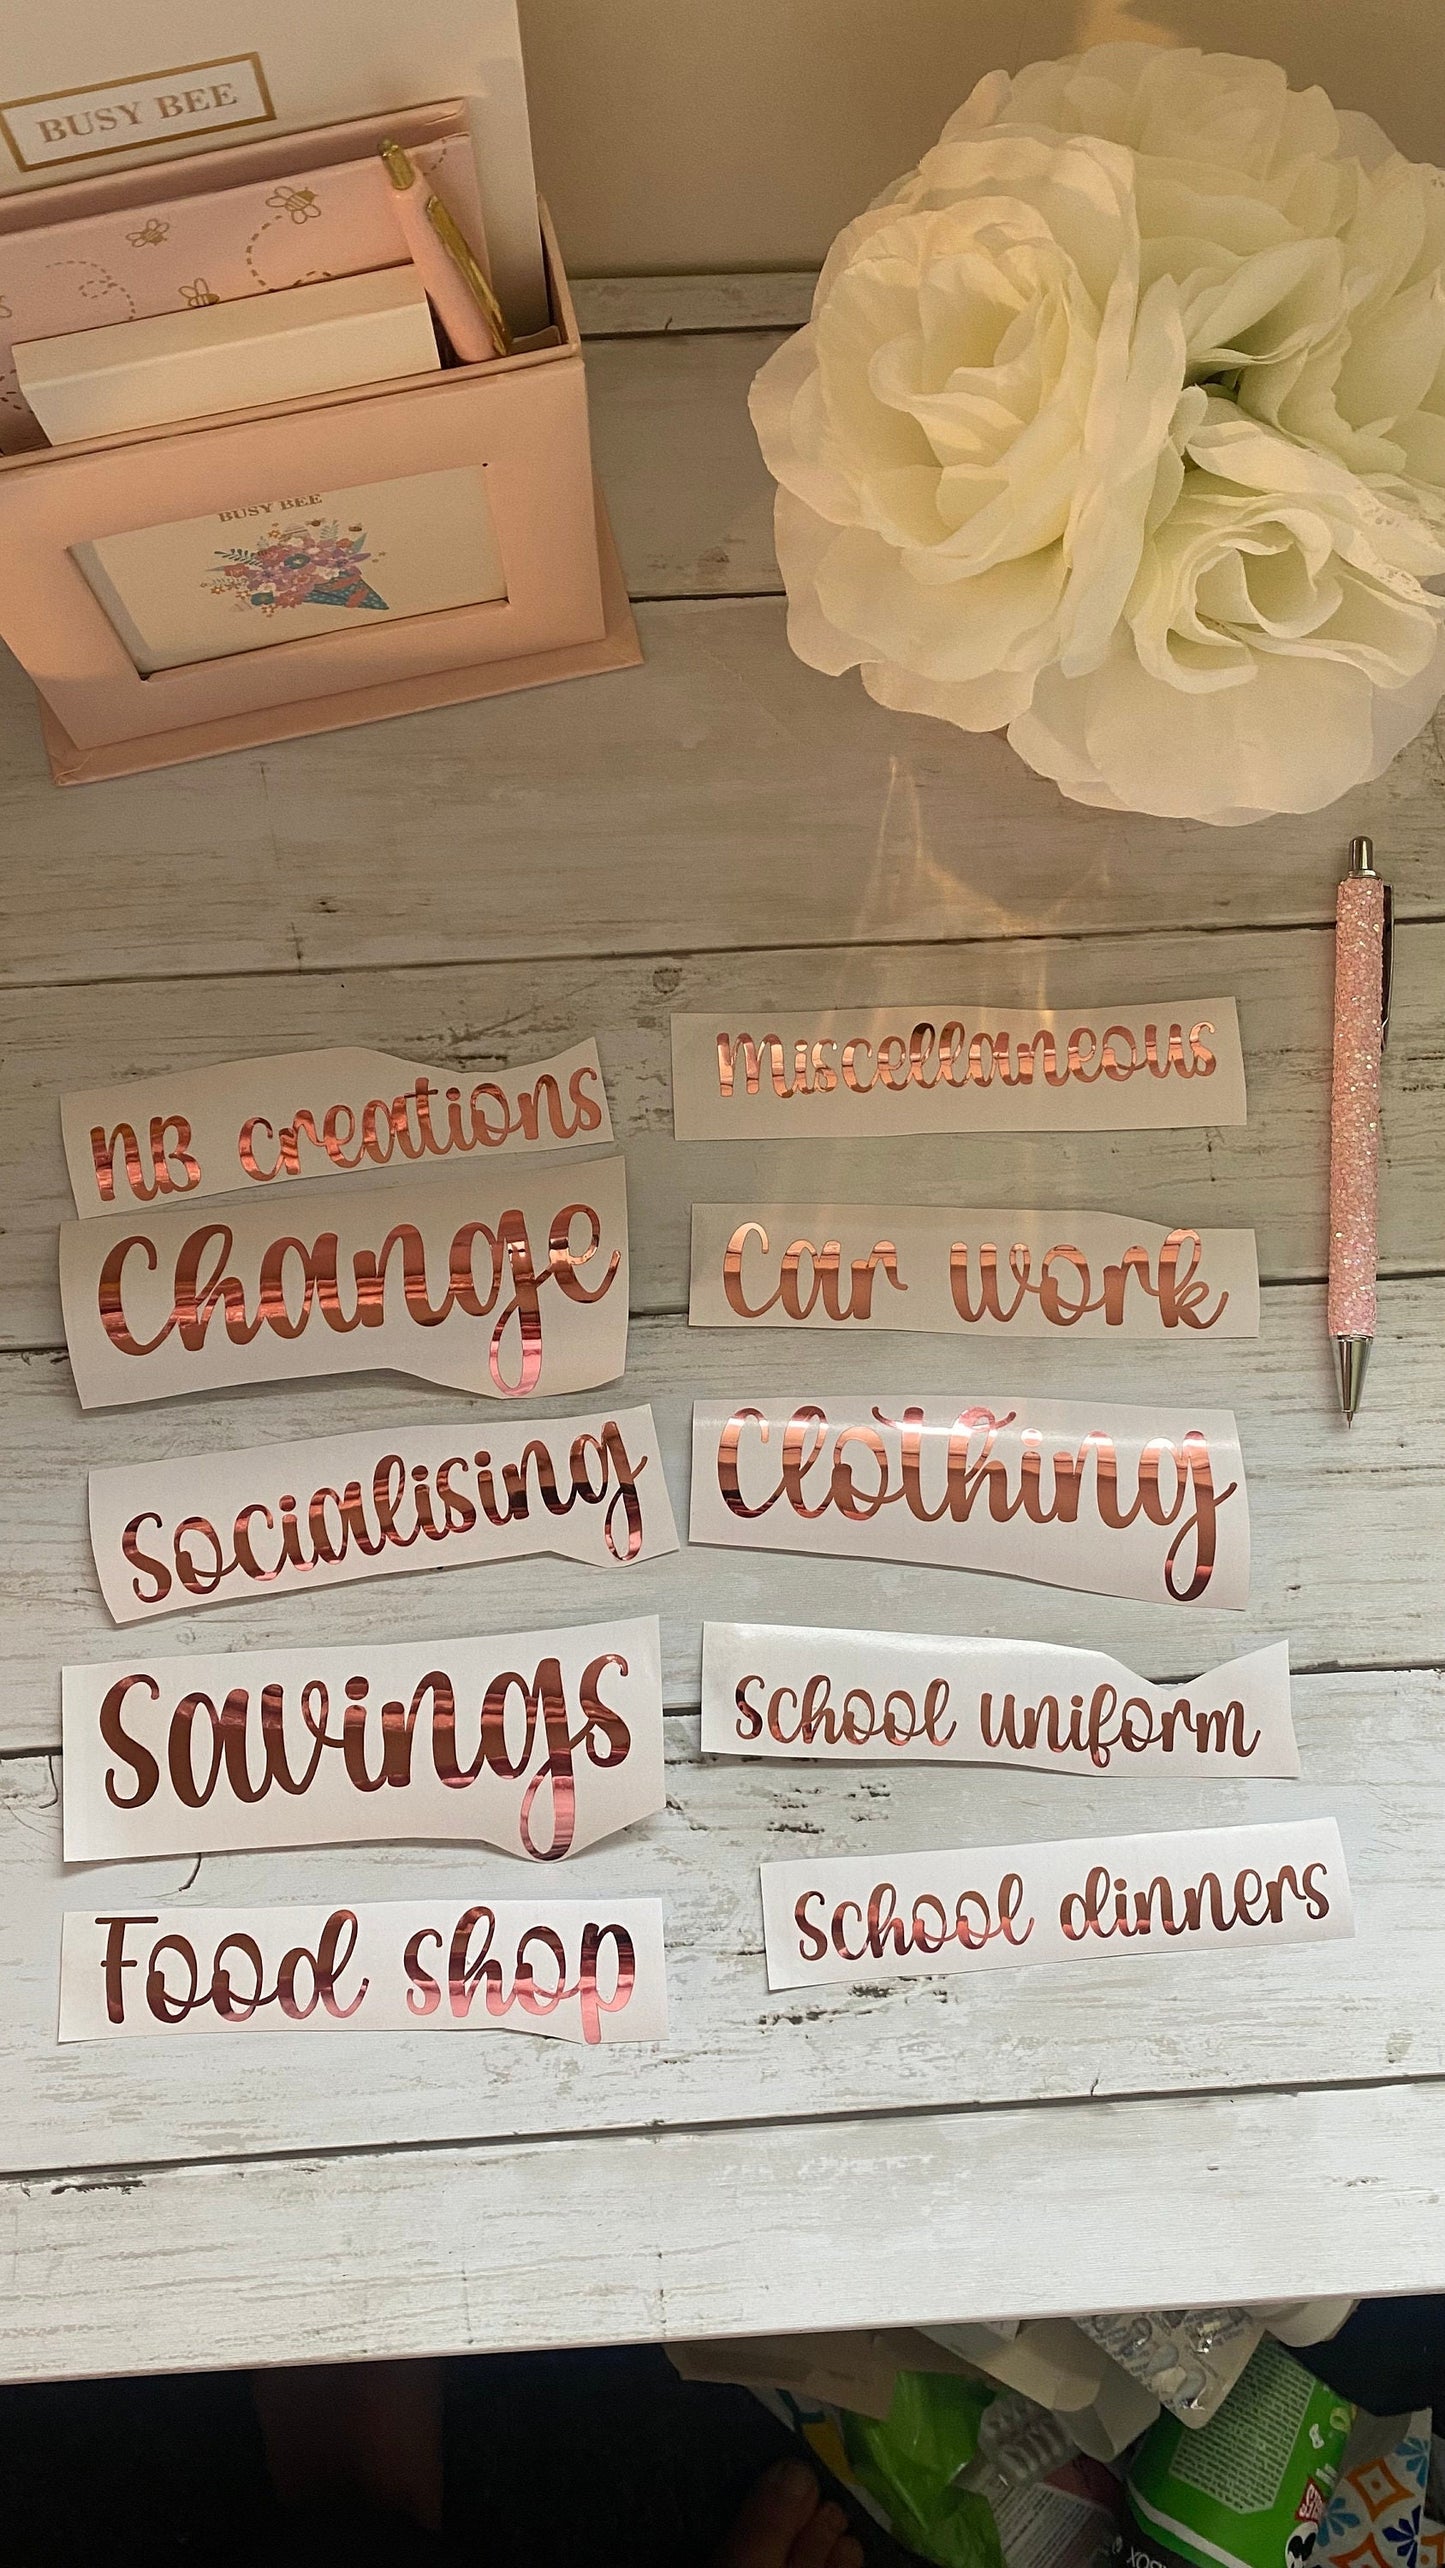 BUSY BEE
BUSY BEE
NB creations
Change
Socialising
Savings
Food shop
Miscellaneous
Car work
Clothing
School uniform
School dinners